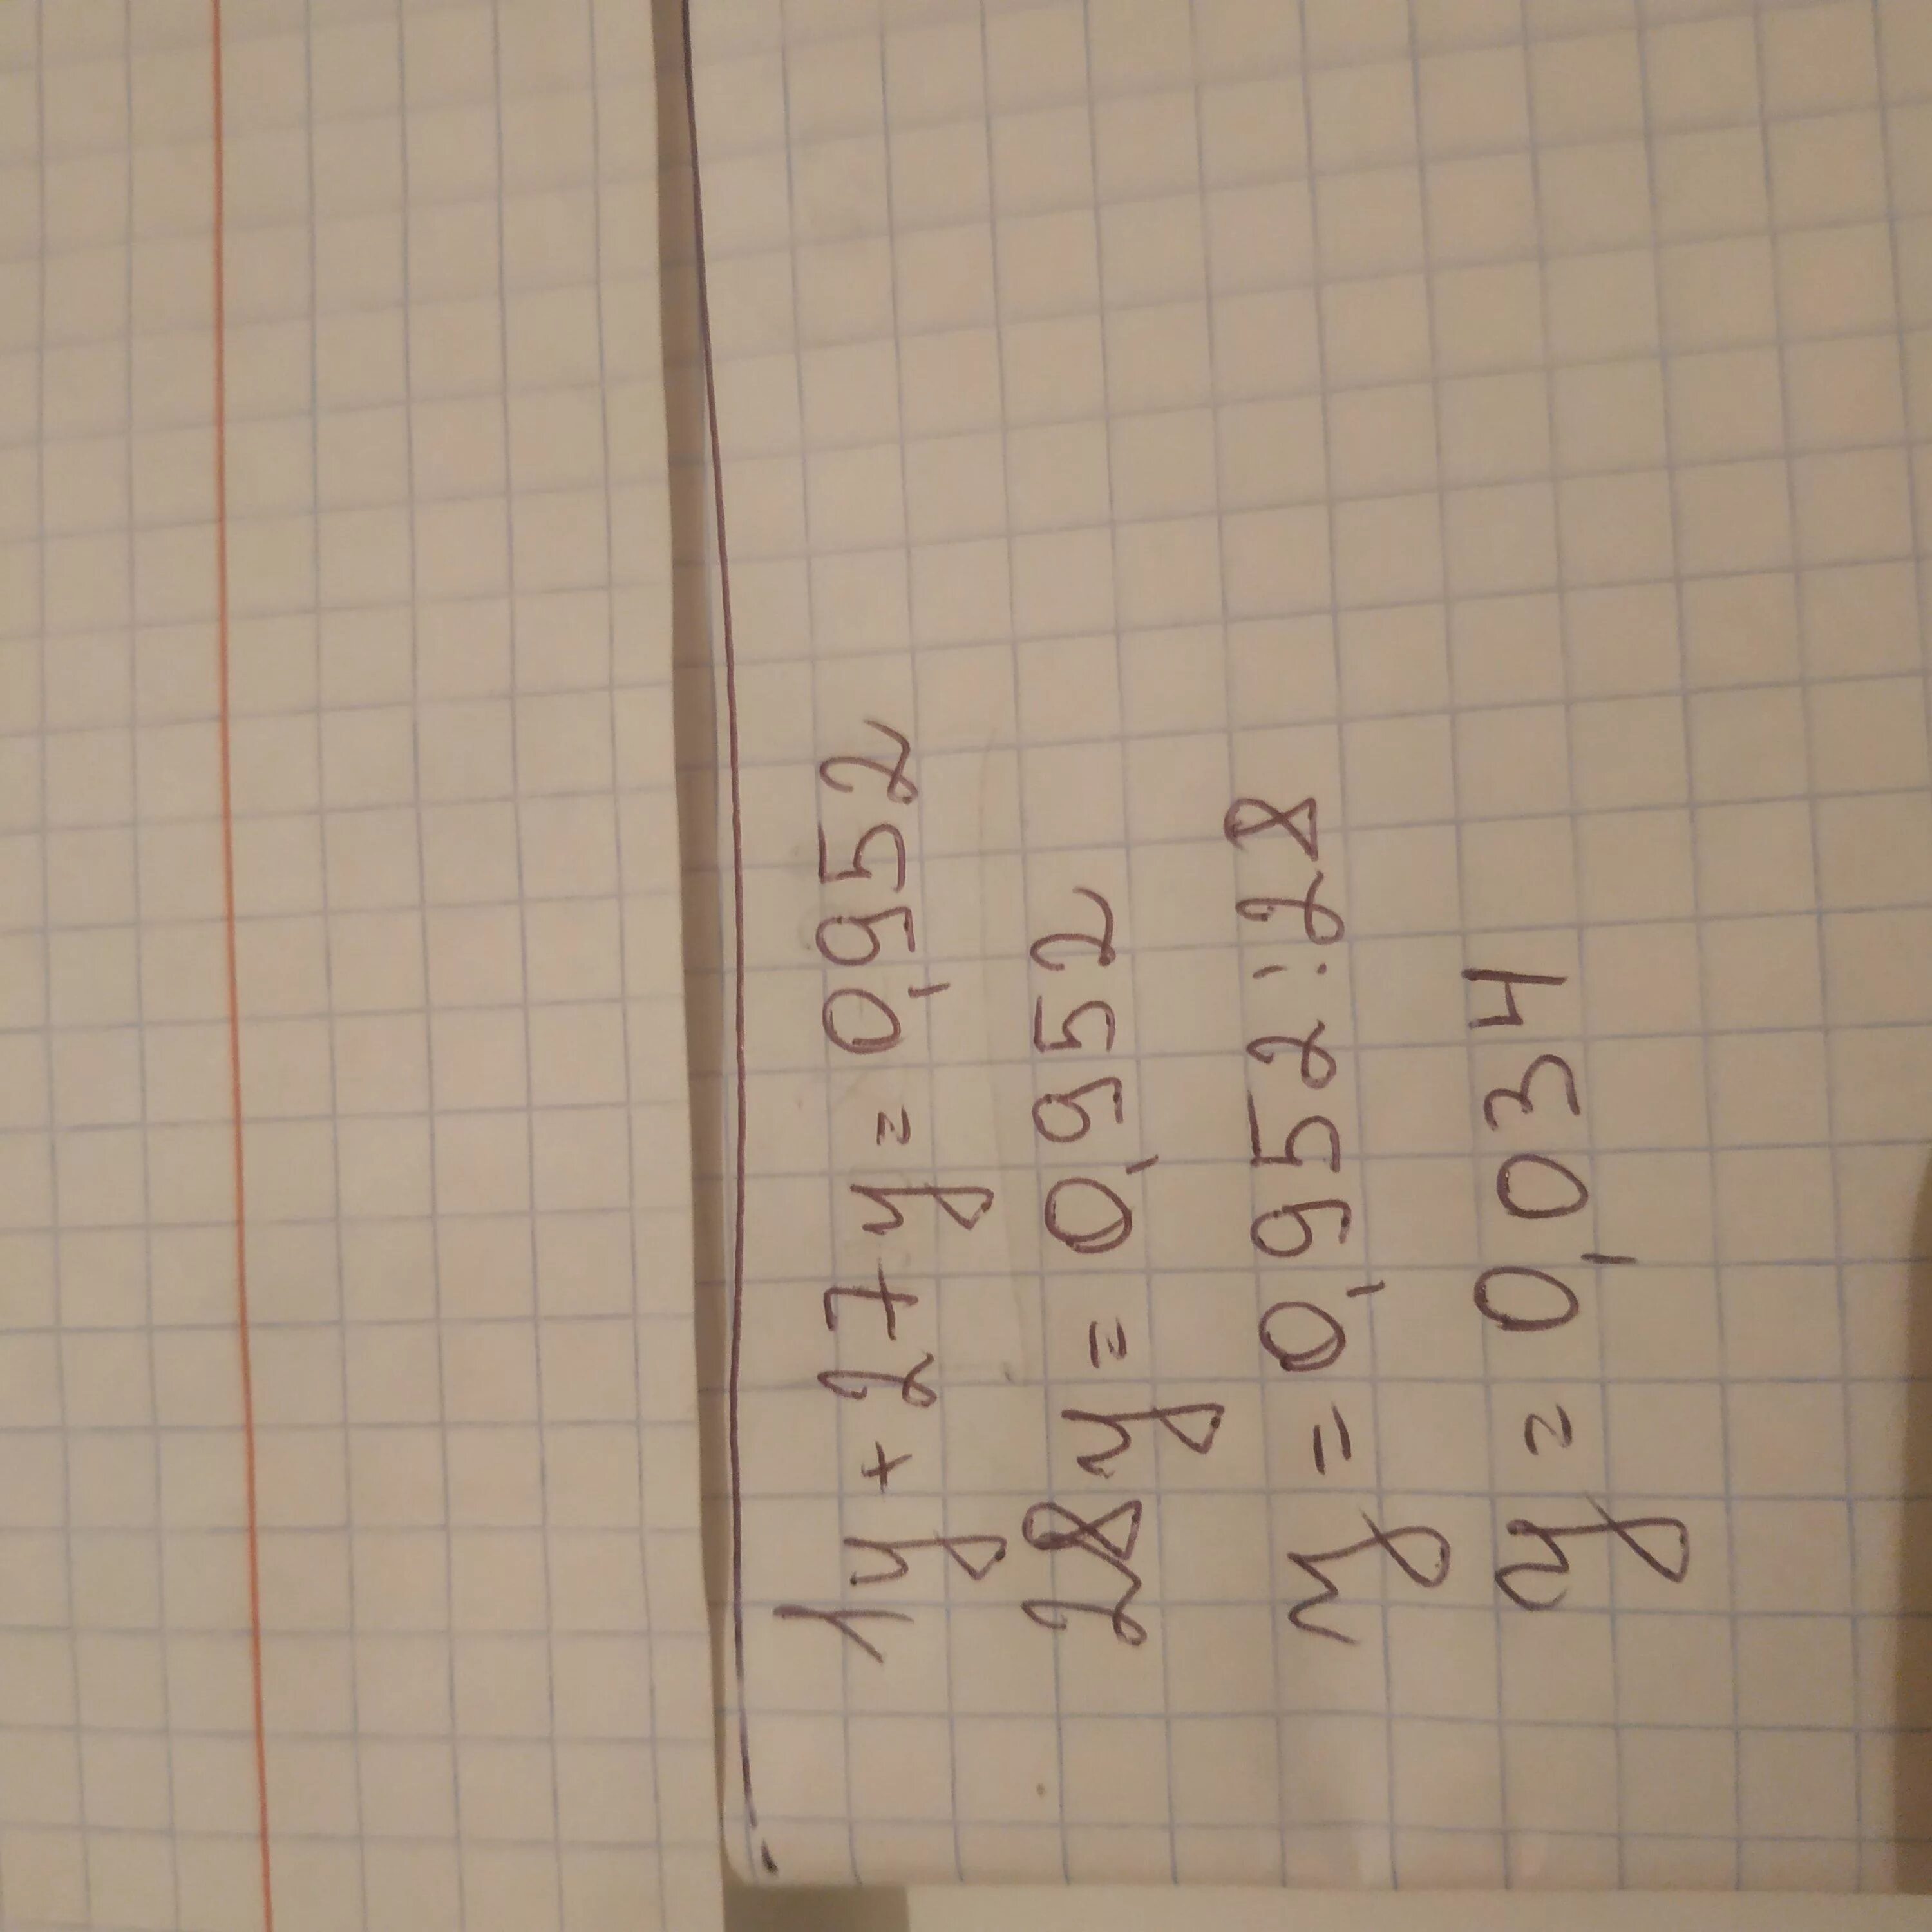 1y + 27y = 0,952
28y = 0,952
y = 0,952 : 28
y = 0,034